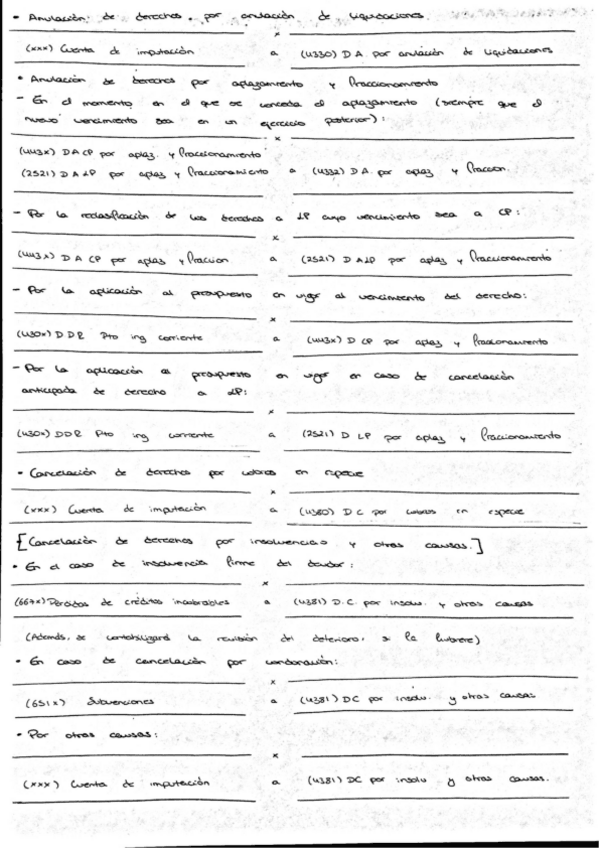 • Anulación de derechos por anulación de liquidaciones.
x
(xxx) Cuenta de imputación a (4330) D A. por anulación de liquidaciones
• Anulación de derechos por aplazamiento y fraccionamiento
- En el momento en el que se conceda el aplazamiento (siempre que el
nuevo vencimiento sea en un ejercicio posterior):
x
(443x) D A CP por aplaz. y fraccionamiento
(2521) D A LP por aplaz y fraccionamiento a (4332) D A. por aplaz. y fraccion
- Por la reclasificación de los derechos a LP cuyo vencimiento sea a CP:
x
(443x) D A CP por aplaz y fraccion a (2521) D A LP por aplaz y fraccionamiento
- Por la aplicación al presupuesto en vigor al vencimiento del derecho:
x
(430x) D D R Pto ing corriente a (443x) D CP por aplaz y fraccionamiento
- Por la aplicación al presupuesto en vigor en caso de cancelación
anticipada de derecho a LP:
x
(430x) DDR Pto ing corriente a (2521) D LP por aplaz y fraccionamiento
• Cancelación de derechos por cobros en especie
x
(xxx) Cuenta de imputación a (4380) D C. por cobros en especie
[Cancelación de derechos por insolvencias y otras causas.]
• En el caso de insolvencia firme del deudor:
x
(667x) Pérdidas de créditos incobrables a (4381) D.C. por insolv. y otras causas
(Además, se contabilizará la reversión del deterioro, si la hubiere)
• En caso de cancelación por condonación:
x
(651x) Subvenciones a (4381) DC por insolv. y otras causas
• Por otras causas:
x
(xxx) Cuenta de imputación a (4381) DC por insolv y otras causas.